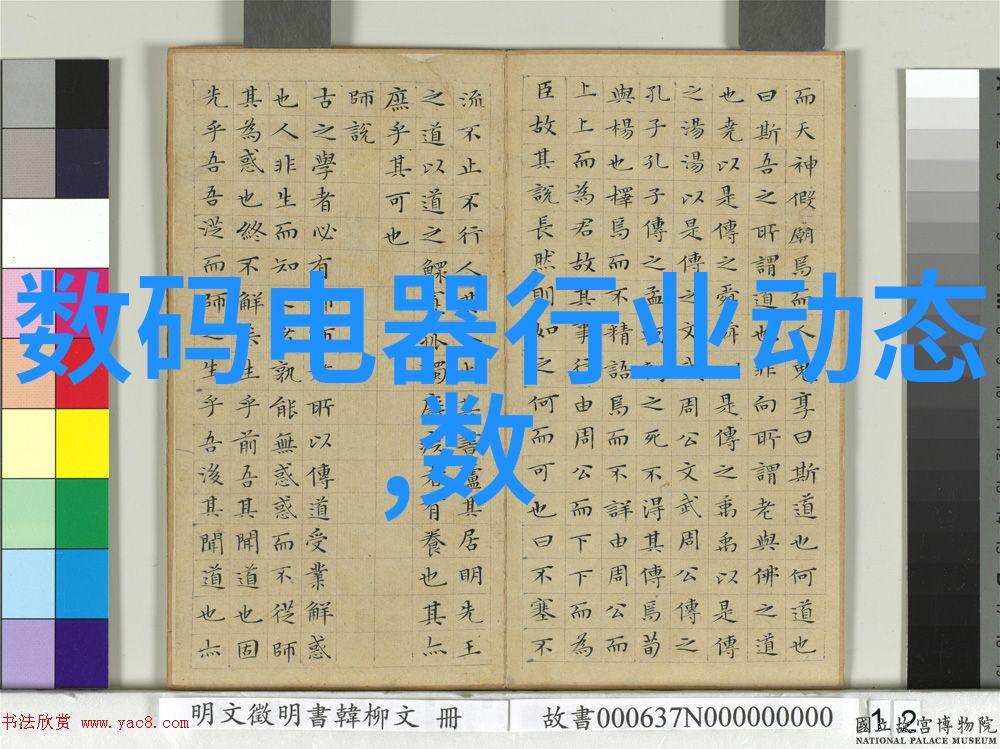 而天神假廟焉而人鬼享曰斯道也何道也
曰斯吾之所謂道也非向所謂老與佛之道
也堯以是傳之舜舜以是傳之禹禹以是傳
之湯湯以是傳之文武周公文武周公傳之
孔子孔子傳之孟之死不得其傳焉荀
與楊也擇焉而不精語焉而不詳由周公而
上上而為君故其事行由周公而下下而為
臣故其說長然則如之何而可也曰不塞不
流不止不行人其書廬其居明先王
之道以道之鰥寡孤獨廢疾者有養也其亦
庶乎其可也
師說
古之學者必有所以傳道受業解惑
也人非生而知者孰能無惑惑而不從師
其為惑也終不解矣生乎前吾其聞道也固
先乎吾吾從而師之生乎吾後其聞道也亦
数码电器行业动态
,数
明文徵明書韓柳文 冊
故書000637N000000000
12
書法欣赏 www.yac8.com
國立故宮博物院
NATIONAL PALACE MUSEUM